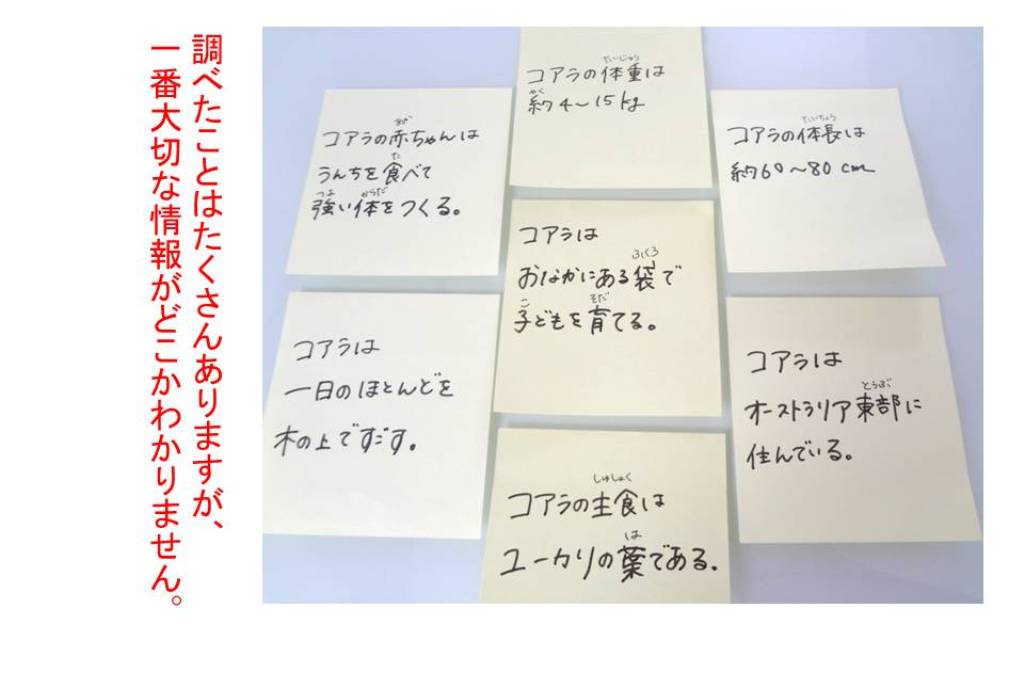 調べたことはたくさんありますが、
一番大切な情報がどこかわかりません。
たいじゅう
コアラの体重は
やく
約4~15kg
あか
コアラの赤ちゃんは
た
うんちを食べて
つよ からだ
強い体をつくる。
たいちょう
コアラの体長は
約60~80cm
コアラは
ふくろ
おなかにある袋で
こ そだ
子どもを育てる。
コアラは
一日のほとんどを
木の上ですごす。
コアラは
とうぶ
オーストラリア東部に
住んでいる。
しゅしょく
コアラの主食は
は
ユーカリの葉である.